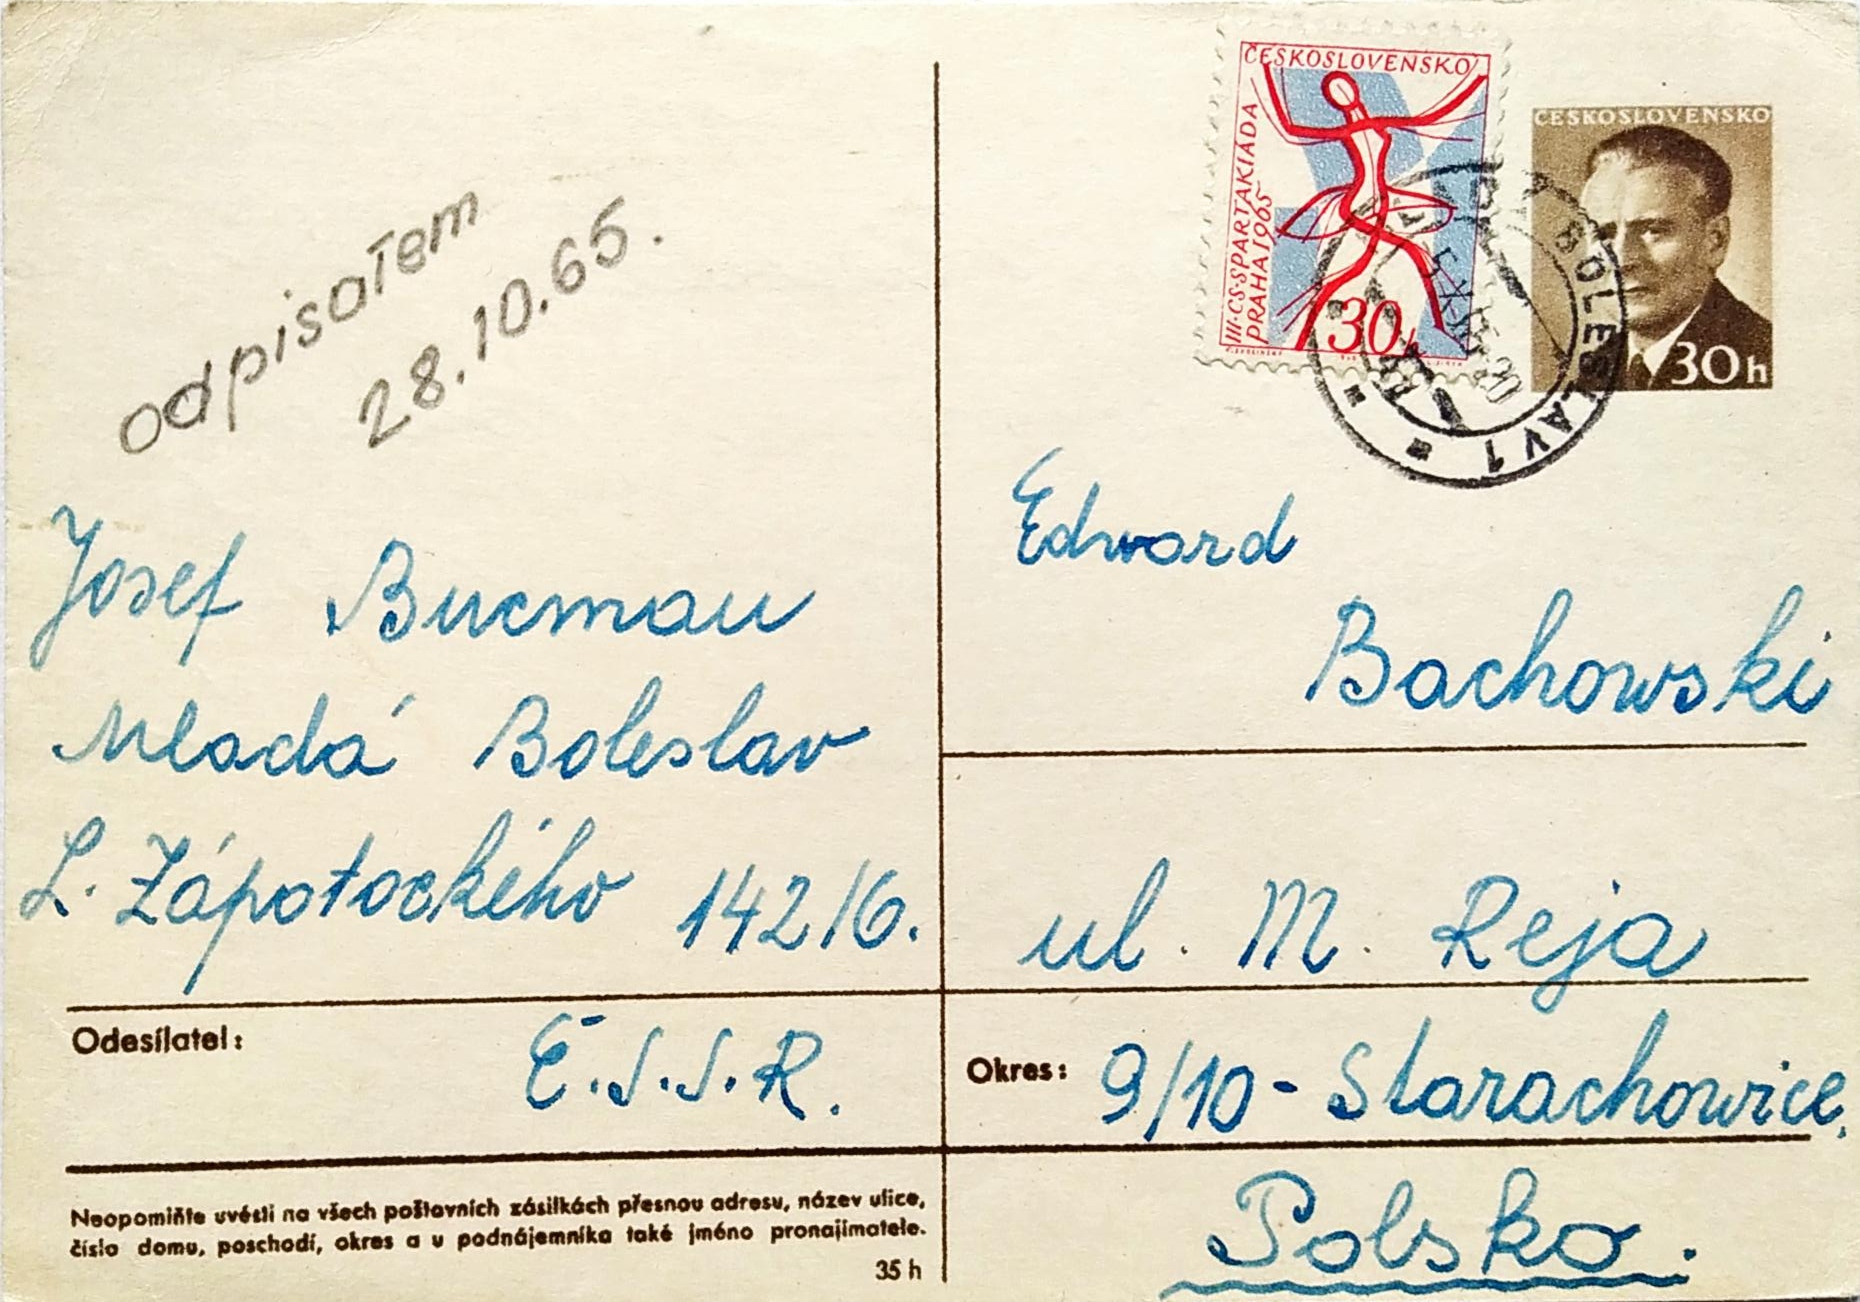 ČESKOSLOVENSKO
III·CS·SPARTAKIÁDA
PRAHA 1965
30h
ČESKOSLOVENSKO
30h
BOLESLAV 1
odpisałem
28.10.65.
Josef Bucman
Mladá Boleslav
L. Zápotockého 142/6.
Odesílatel:
Č.S.S.R.
Neopomiňte uvésti na všech poštovních zásilkách přesnou adresu, název ulice,
číslo domu, poschodí, okres a u podnájemníka také jméno pronajímatele.
35 h
Edward
Bachowski
ul. M. Reja
Okres: 9/10 - Starachowice,
Polsko.